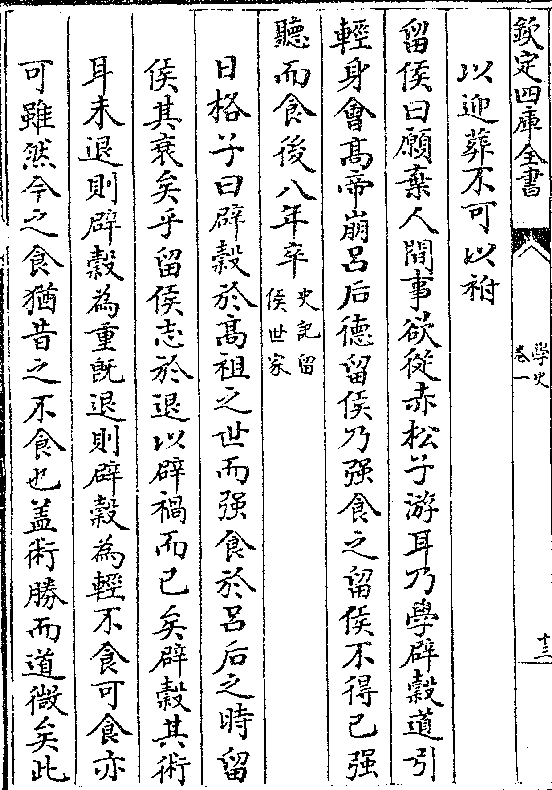 欽定四庫全書
學史
卷一
十三
以迎葬不可以祔
留侯曰願棄人間事欲從赤松子游耳乃學辟穀道引
輕身會高帝崩吕后德留侯乃强食之留侯不得已强
聽而食後八年卒史記留侯世家
日格子曰辟穀於高祖之世而强食於吕后之時留
侯其衰矣乎留侯志於退以辟禍而已矣辟穀其術
耳未退則辟穀為重既退則辟穀為輕不食可食亦
可雖然今之食猶昔之不食也盖術勝而道微矣此